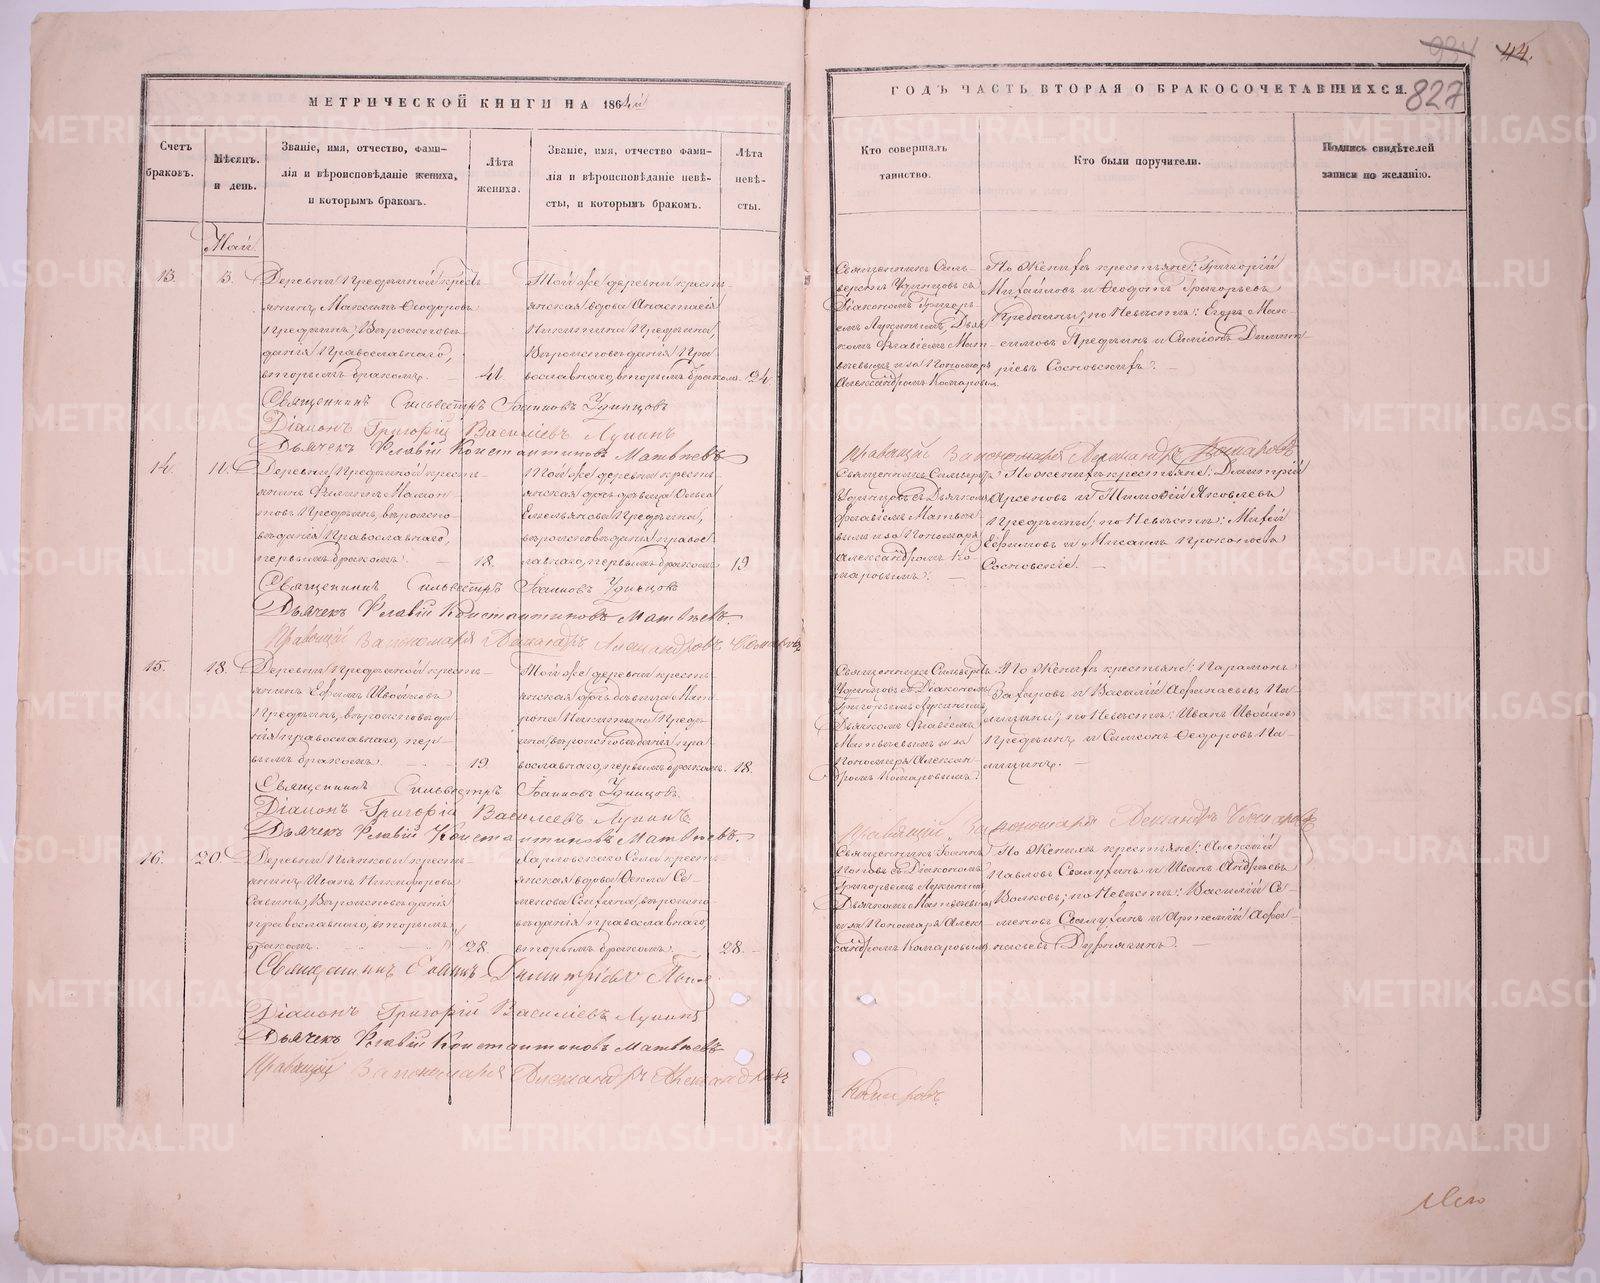 944
44.
827
МЕТРИЧЕСКОЙ КНИГИ НА 1864й
ГОДЪ ЧАСТЬ ВТОРАЯ О БРАКОСОЧЕТАВШИХСЯ.
Счетъ браковъ.
Мѣсяцъ. и день.
Званіе, имя, отчество, фами-
лія и вѣроисповѣданіе жениха,
и которымъ бракомъ.
Лѣта
жениха.
Званіе, имя, отчество фами-
лія и вѣроисповѣданіе невѣ-
сты, и которымъ бракомъ.
Лѣта
невѣ-
сты.
Кто совершалъ
таинство.
Кто были поручители.
Подпись свидѣтелей
записи по желанію.
Май.
13. 3.
Деревни Предѣиной кресть-
янинъ Максимъ Ѳеодоровъ
Предѣинъ, Вѣроисповѣ-
данія Православнаго,
вторымъ бракомъ. 41.
Той же деревни кресть-
янская вдова Анастасія
Никитина Предѣина,
Вѣроисповѣданія Пра-
вославнаго, вторымъ бракомъ. 24
Священникъ Силь-
верстъ Удинцовъ съ
Діакономъ Григорь-
емъ Лукинымъ, Дьяч-
комъ Флавіемъ Мат-
вѣевымъ и за Пономаря
Александромъ Комаровымъ.
По Женихѣ крестьяне: Григорій
Михайловъ и Ѳеодотъ Григорьевъ
Предѣины; по Невѣстѣ: Егоръ Мак-
симовъ Предѣинъ и Симіонъ Димит-
ріевъ Сосновскихъ.
Священникъ Сильвестръ Іоанновъ Удинцовъ
Діаконъ Григорій Василіевъ Лукинъ
Дьячекъ Флавій Константиновъ Матвѣевъ
Правящій За пономаря Александръ Комаровъ
14. 11.
Деревни Предѣиной кресть-
янинъ Филиппъ Мамон-
товъ Предѣинъ, вѣроиспо-
вѣданія Православнаго,
первымъ бракомъ. 18.
Той же деревни кресть-
янская дочь дѣвица Ольга
Емельянова Предѣина,
вѣроисповѣданія правос-
лавнаго, первымъ бракомъ 19
Священникъ Сильверстъ
Удинцовъ съ Дьячкомъ
Флавіемъ Матвѣе-
вымъ и за Пономаря
Александромъ Ко-
маровымъ.
По женихѣ крестьяне: Дмитрій
Арсеновъ и Тимофій Яковлевъ
Предѣины; по Невѣстѣ: Михей
Ефимовъ и Мисаилъ Прокопьевъ
Сосновскіе.
Священникъ Сильвестръ Іоанновъ Удинцовъ
Дьячекъ Флавій Константиновъ Матвѣевъ.
Правящій За пономаря Александръ Александровъ Комаровъ
15. 18.
Деревни Предѣиной кресть-
янинъ Ефимъ Ивойловъ
Предѣинъ, вѣроисповѣда-
нія православнаго, пер-
вымъ бракомъ. 19.
Той же деревни кресть-
янская дочь дѣвица Мат-
рона Никитина Предѣ-
ина, вѣроисповѣданія пра-
вославнаго, первымъ бракомъ. 18.
Священникъ Сильверстъ
Удинцовъ съ Діакономъ
Григорьемъ Лукинымъ,
Дьячкомъ Флавіемъ
Матвѣевымъ и за
Пономаря Алексан-
дромъ Комаровымъ.
По Женихѣ крестьяне: Парамонъ
Захаровъ и Василій Афанасьевъ Па-
лицины; по Невѣстѣ: Иванъ Ивойловъ
Предѣинъ и Самсонъ Ѳедоровъ Па-
лицинъ.
Священникъ Сильвестръ Іоанновъ Удинцовъ.
Діаконъ Григорій Василіевъ Лукинъ
Дьячекъ Флавій Константиновъ Матвѣевъ.
Правящій За пономаря Александръ Комаровъ
16. 20.
Деревни Пятковой кресть-
янинъ Иванъ Никифоровъ
Вѣроисповѣданія
православнаго, вторымъ
бракомъ. 28.
Харловскаго Села кресть-
янская вдова Ѳекла Се-
менова вѣроиспо-
вѣданія православнаго,
вторымъ бракомъ. 28.
Священникъ Іоаннъ
Поповъ съ Діакономъ
Григорьемъ Лукинымъ,
Дьячкомъ Матвѣевымъ
и за Пономаря Алек-
сандромъ Комаровымъ.
По Женихѣ крестьяне: Алексѣй
Павловъ и Иванъ Андреевъ
Волковъ; по Невѣстѣ: Василій Се-
меновъ и Артемій Афа-
насьевъ
Священникъ Іоаннъ Димитріевъ Поповъ
Діаконъ Григорій Василіевъ Лукинъ
Дьячекъ Флавій Константиновъ Матвѣевъ
Правящій За пономаря Александръ Александровъ
Комаровъ.